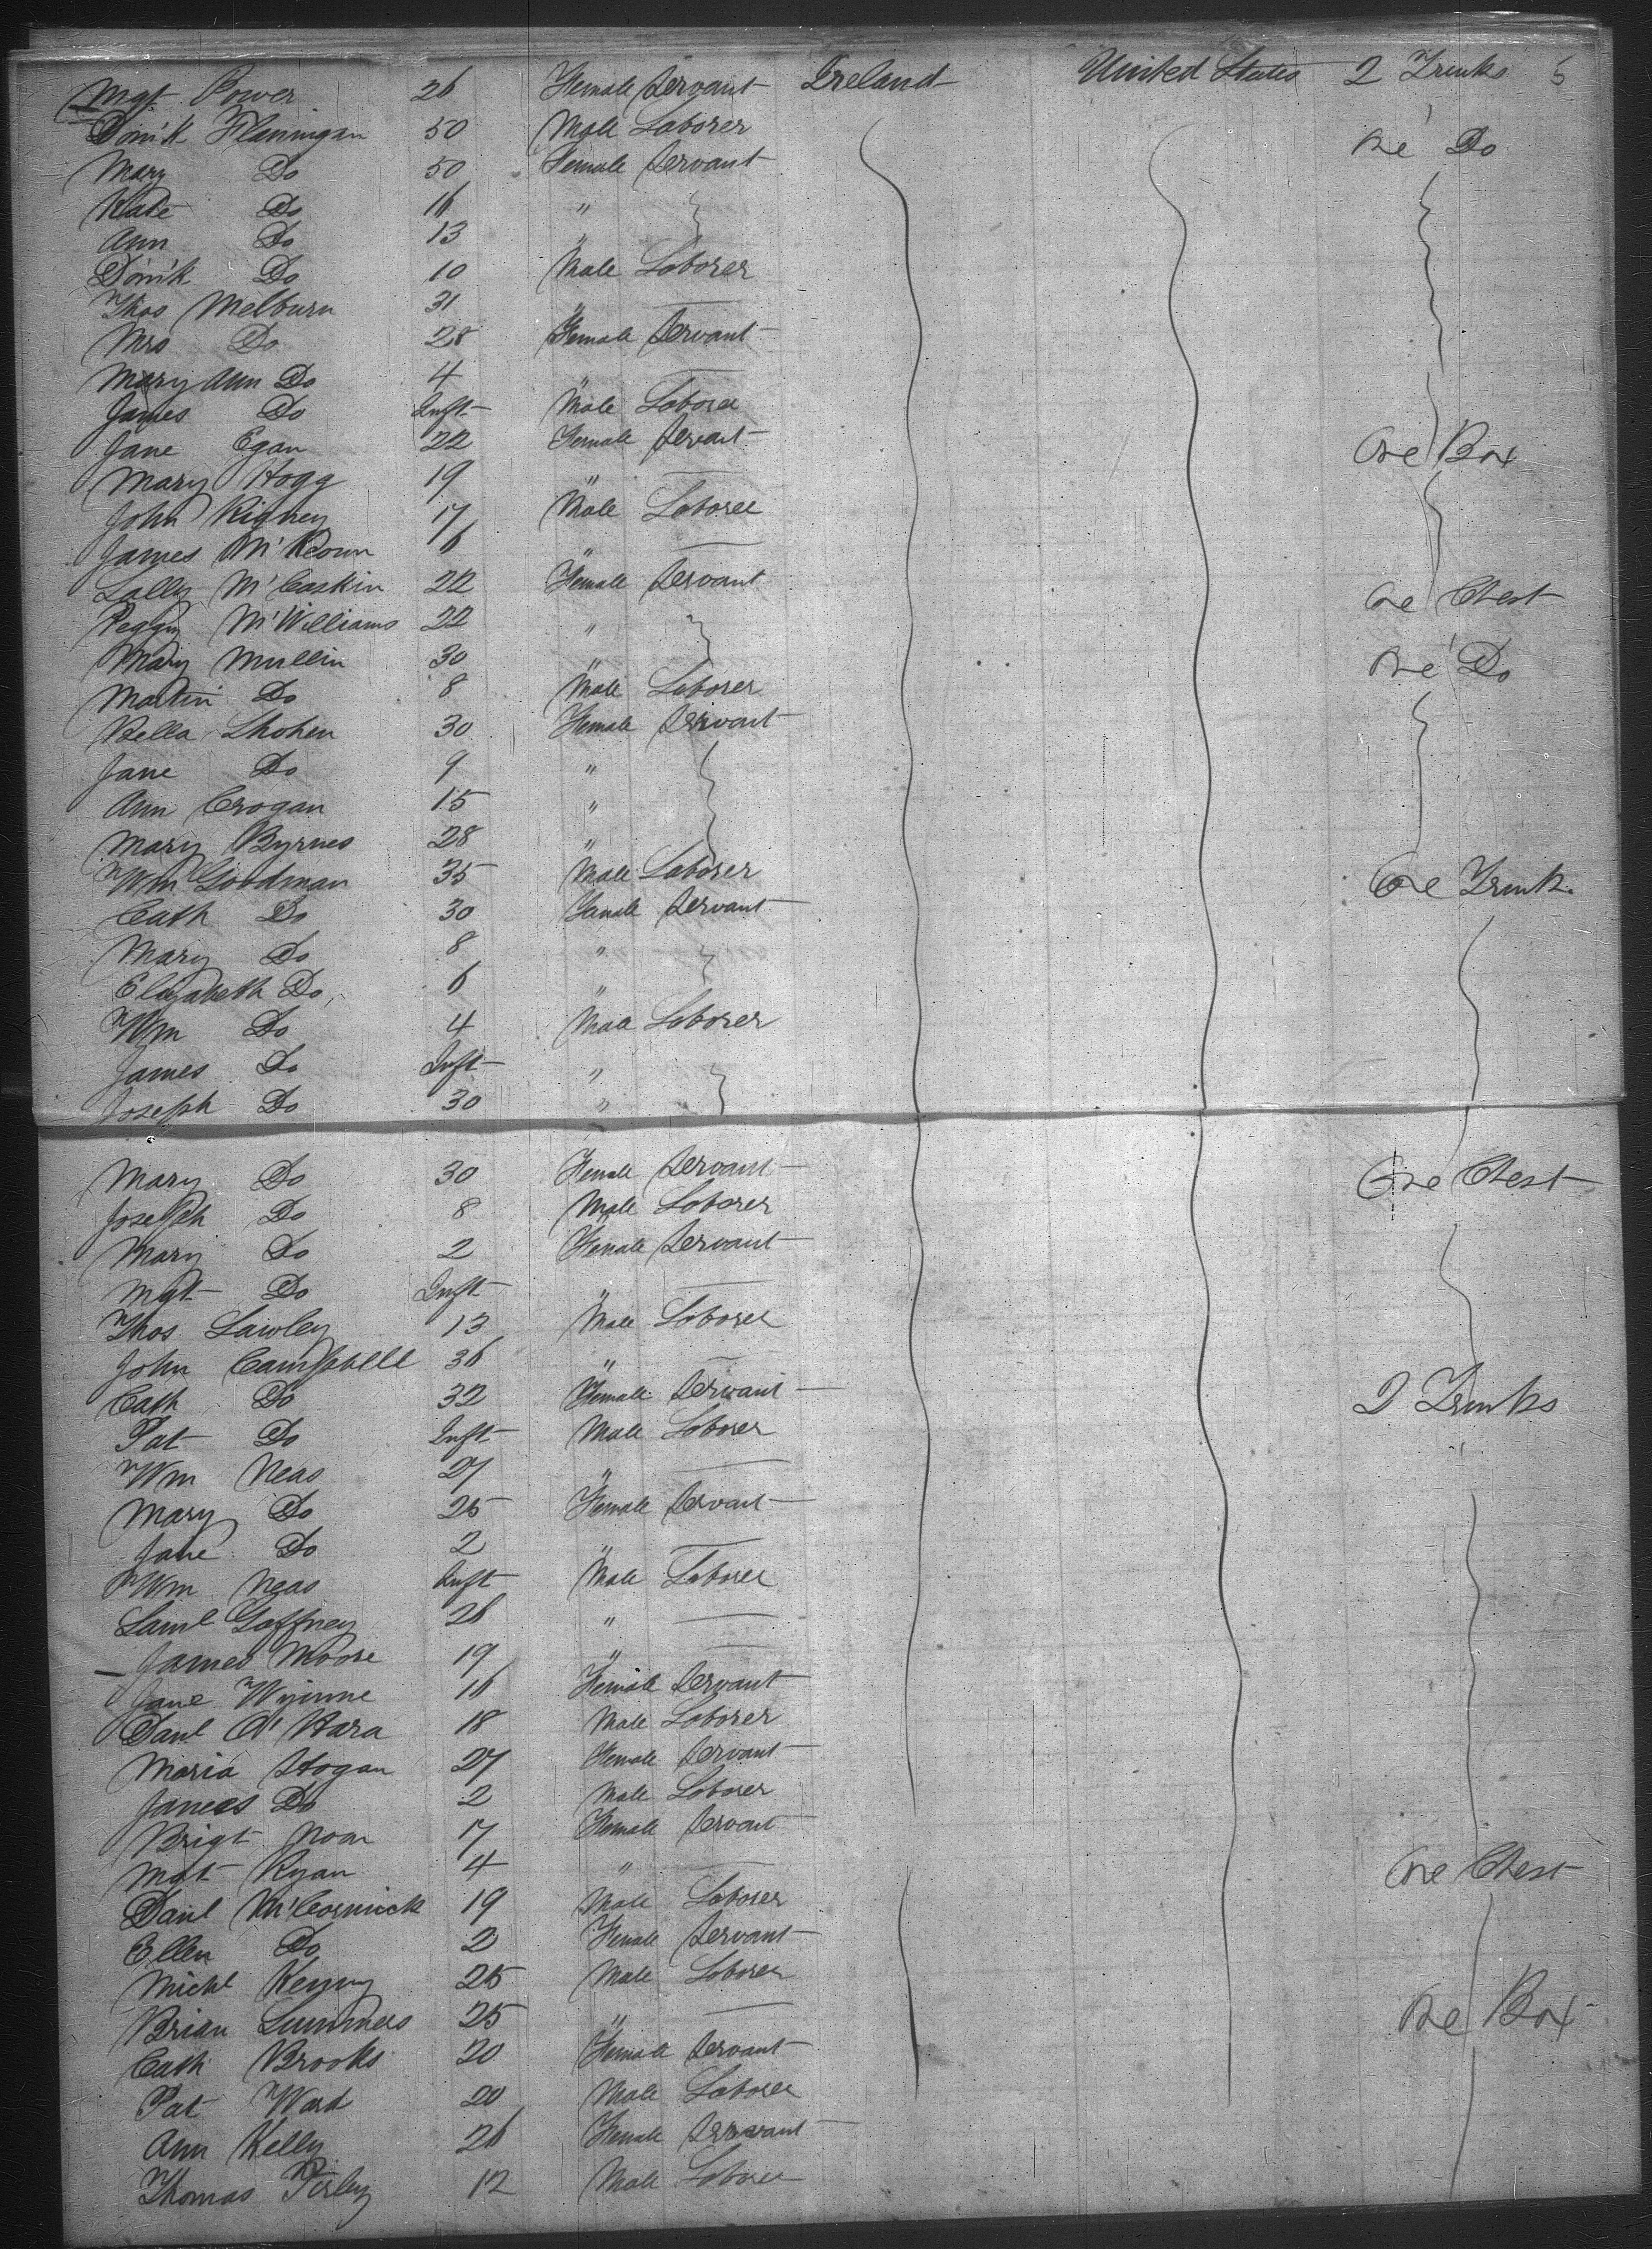 Mgt Power 26 Female Servant Ireland United States 2 Trunks 6
Domk Flannigan 50 Male Laborer One Do
Mary Do 50 Female Servant
Kate Do 16 "
Ann Do 13 "
Domk Do 10 Male Laborer
Thos Melburn 31 "
Mrs Do 28 Female Servant
Mary Ann Do 4 "
James Do Inft Male Laborer
Jane Egan 22 Female Servant One Box
Mary Hogg 19 "
John Rigney 17 Male Laborer
James McKeown 16 "
Sally McCaskin 22 Female Servant One Chest
Peggy McWilliams 22 "
Mary Mullin 30 " One Do
Martin Do 8 Male Laborer
Bella 30 Female Servant
Jane Do 9 "
Ann Crogan 15 "
Mary Byrnes 28 "
Wm Goodman 35 Male Laborer One Trunk
Cath Do 30 Female Servant
Mary Do 8 "
Elizabeth Do 6 "
Wm Do 4 Male Laborer
James Do Inft "
Joseph Do 30 "
Mary Do 30 Female Servant One Chest
Joseph Do 8 Male Laborer
Mary Do 2 Female Servant
Mgt Do Inft "
Thos Lawley 13 Male Laborer
John Campbell 36 "
Cath Do 32 Female Servant 2 Trunks
Pat Do Inft Male Laborer
Wm Neas 27 "
Mary Do 25 Female Servant
Jane Do 2 "
Wm Neas Inft Male Laborer
Saml Gaffney 26 "
James Moore 19 "
Jane Wynne 16 Female Servant
Danl O'Hara 18 Male Laborer
Maria Hogan 27 Female Servant
James Do 2 Male Laborer
Brigt 17 Female Servant
Mgt Ryan 4 " One Chest
Danl McCormick 19 Male Laborer
Ellen Do 2 Female Servant
Michl Kenny 25 Male Laborer
Brian Summers 25 " One Box
Cath Brooks 20 Female Servant
Pat Ward 20 Male Laborer
Ann Kelly 26 Female Servant
Thomas 12 Male Laborer